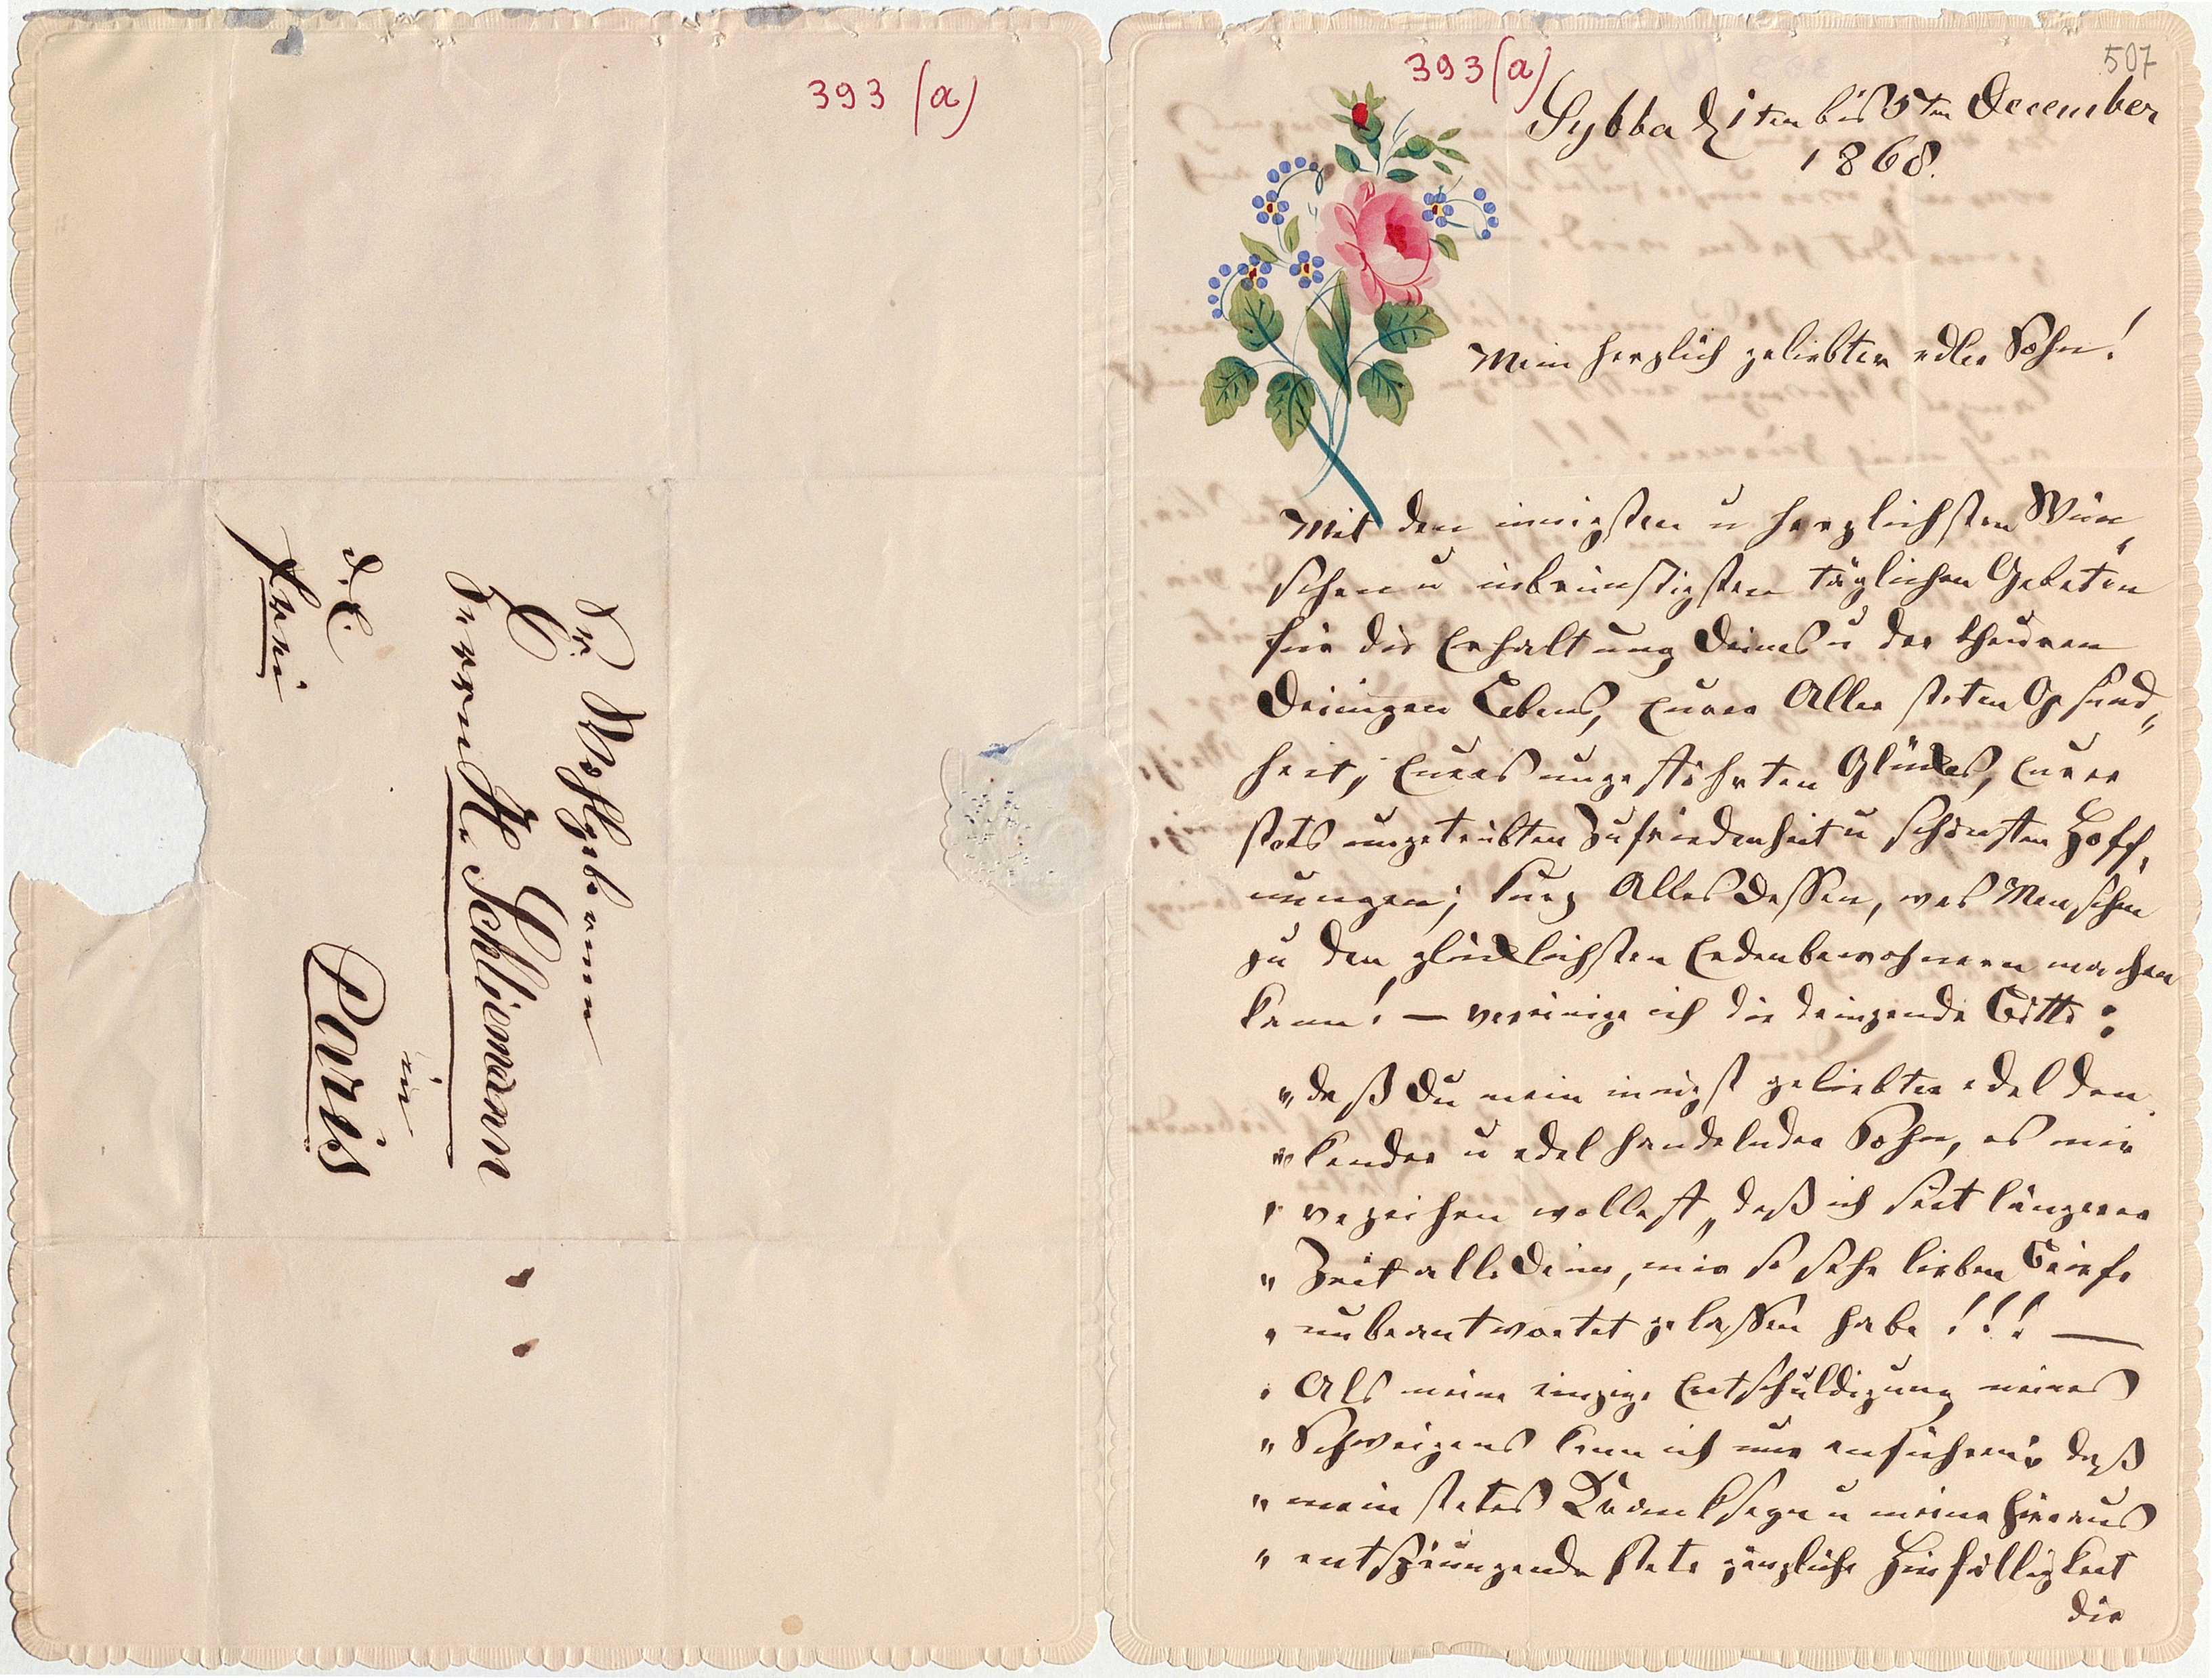 393 (a)
Sr. Wohlgeboren
Herrn H. Schliemann
in
Paris
d. E.
frei
393 (a)
507
Sybba d 1ten bis 5ten December
1868.
Mein herzlich geliebter edler Sohn!
Mit den innigsten u herzlichsten Wün„
schen u inbrünstigsten täglichen Gebeten
für die Erhaltung Deines u der theuren
Deinigen Lebens, Eurer Aller steten Gesund„
heit, Eures ungestöhrten Glückes, Eurer
stets ungetrübten Zufriedenheit u schönsten Hoff„
nungen; kurz Alles dessen, was Menschen
zu den glücklichsten Erdenbewohnern machen
kann! — vereinige ich die dringende Bitte:
„daß Du mein innigst geliebter edel den„
„kender u edel handelnder Sohn, es mir
„verzeihen wollest, daß ich seit längerer
„Zeit alle Deine, mir so sehr lieben Briefe
„unbeantwortet gelassen habe!!! —
„Als meine einzige Entschuldigung meines
„Schweigens kann ich nur anführen: daß
„mein stetes Krankseyn u meine hieraus
„entspringende stete gänzliche Hinfälligkeit
die